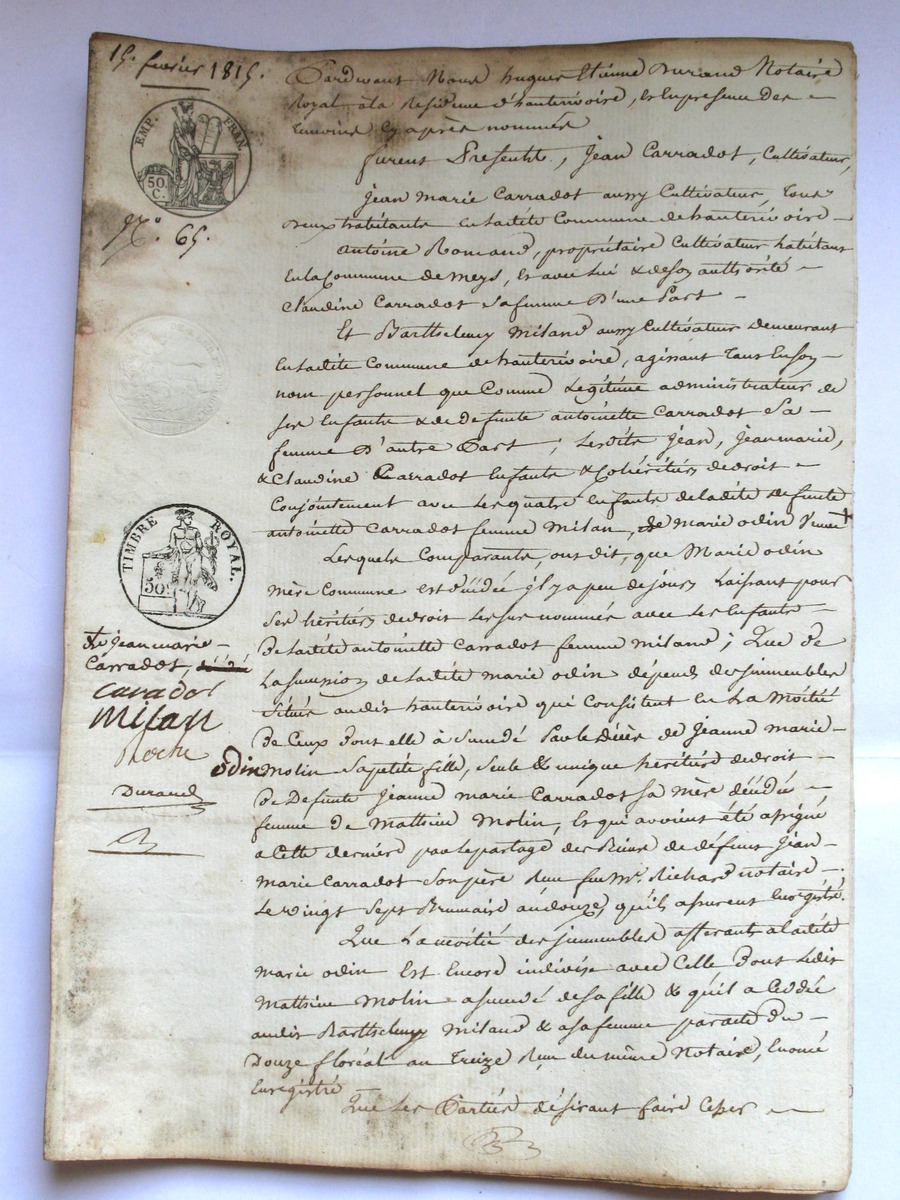 15. fevrier 1815.
EMP. FRAN
50 C.
N.º 65.
TIMBRE ROYAL.
50
Pardevant Nous hugues Etienne Durand Notaire
Royal ala Residence d'hauterivoire, & En presence Des
temoins Cy après nommés
furent Presents, Jean Carradot, Cultivateur,
Jean Marie Carradot aussy Cultivateur, Tous
deux habitants en ladite Commune de hauterivoire
antoine Romand, propriétaire Cultivateur habitant
En la Commune de Meys, & avec lui & de son authorité
Claudine Carradot sa femme D'une Part
Et Barthelemy Miland aussy Cultivateur Demeurant
En ladite Commune de hauterivoire, agissant Tant En son
nom personnel que Comme Legitime administrateur de
ses Enfants & de Defunte antoinette Carradot Sa
femme D'autre Part; Lesdits Jean, Jean marie,
& Claudine Carradot Enfants & Cohéritiers de droit
Conjointement avec Les quatre Enfants de ladite Defunte
antoinette Carradot femme Milan, de Marie odin Veuve +
Lesquels Comparants, ont dit, que Marie odin
mère Commune est décédée il y a peu de jours Laissant pour
Ses héritiers de droit Les sus nommés avec Les Enfants
De ladite antoinette Carradot femme miland; Que de
La succession de ladite marie odin dépend des immeubles
Situés audit hauterivoire qui Consistent en La Moitié
De Ceux dont elle à succédé Par le Décès de Jeanne marie
Molin Sa petite fille, seule & unique héritière de droit
De Defunte Jeanne marie Carradot sa mère décédée
femme de Mathieu Molin, & qui avoient été assigné
a Cette dernière par le partage des Biens de défunt Jean
Marie Carradot son père Reçu feu Mr. Richard notaire
Le vingt Sept Brumaire an douze, qu'ils assurent Enregistré.
Que La moitié des immeubles afferants a ladite
marie odin Est Encore indivise avec Celle Dont Ledit
Mathieu Molin a succédé de sa fille & qu'il a Cédée
audit Barthelemy Miland & a sa femme par acte du
Douze floréal an Treize Reçu du même Notaire, Enoncé
Enregistré
Que Les Parties désirant faire Cesser
+ de Jean marie
Carradot,
Caradot
Milan
Roche
odin
Durand